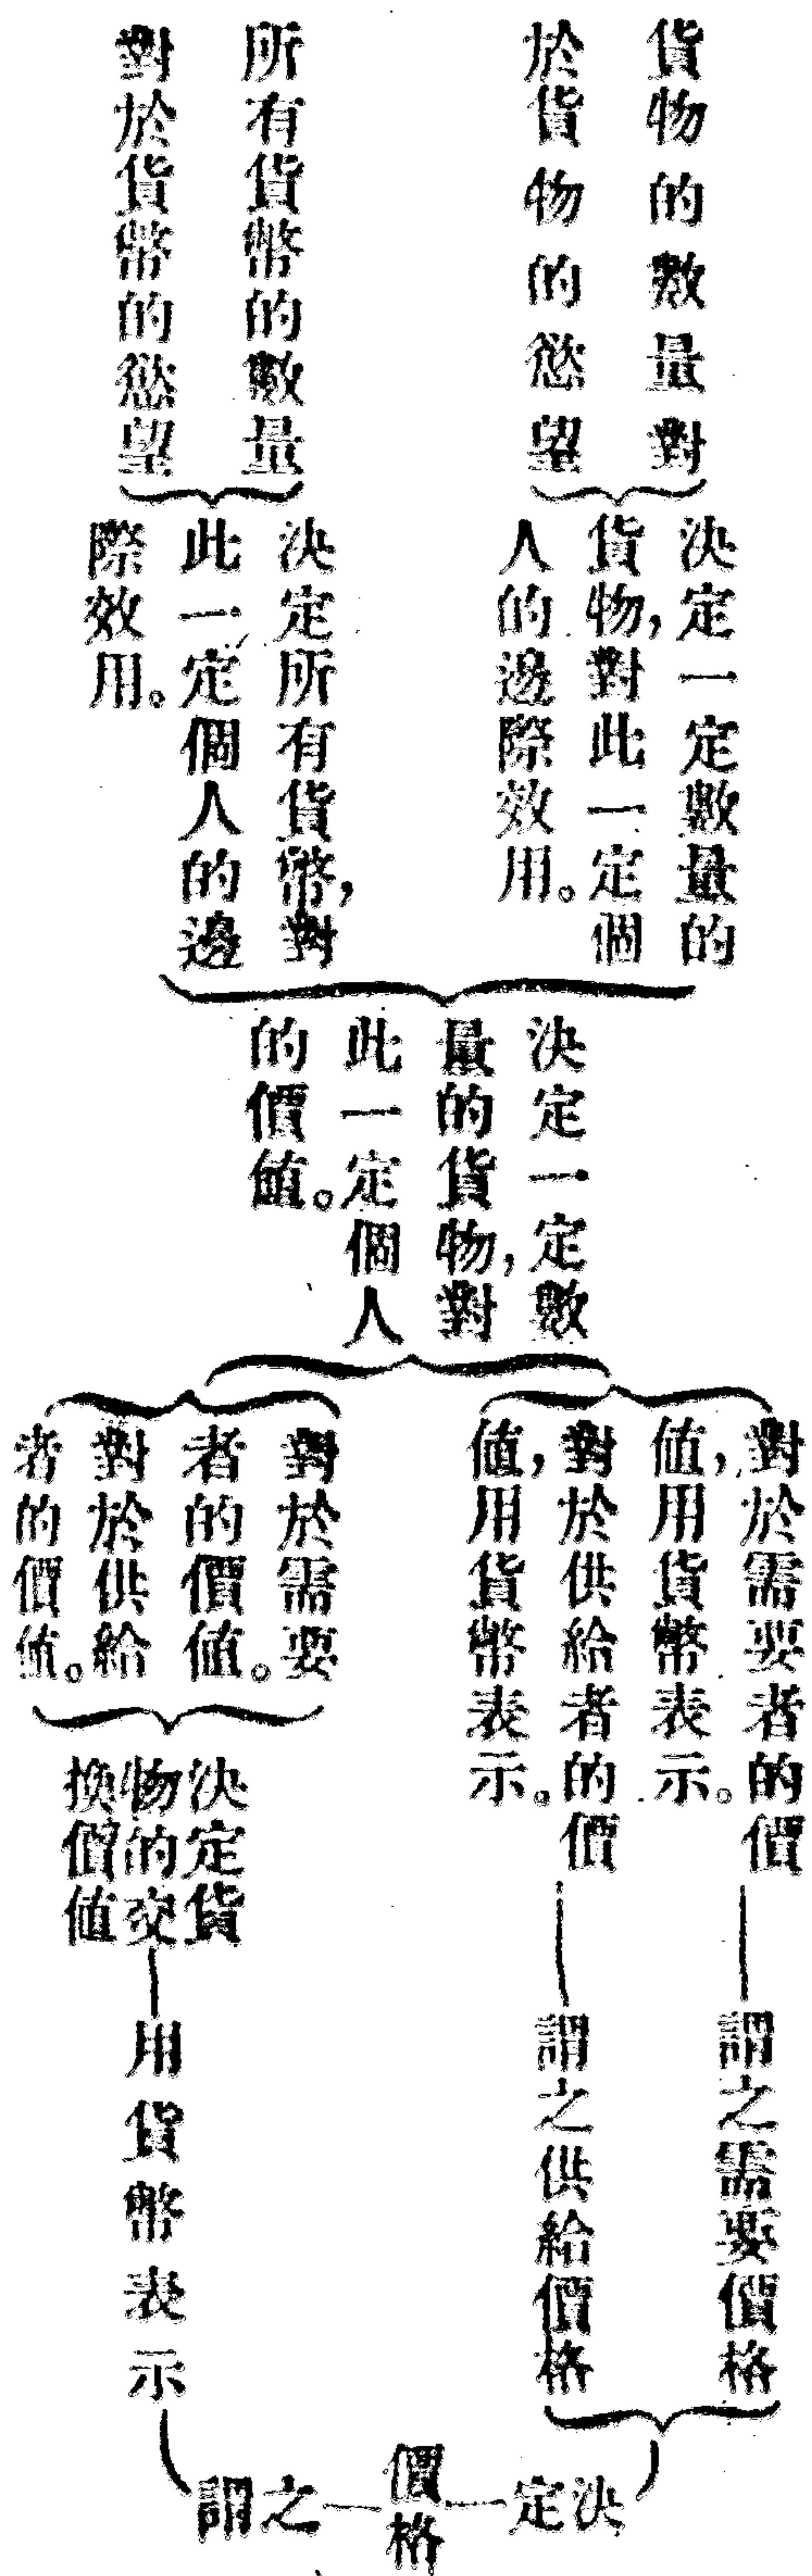 貨物的數量對
於貨物的慾望
決定一定數量的
貨物，對此一定個
人的邊際效用。
所有貨幣的數量
對於貨幣的慾望
決定所有貨幣，對
此一定個人的邊
際效用。
決定一定數
量的貨物，對
此一定個人
的價値。
對於需要者的價
値，用貨幣表示。
謂之需要價格
對於供給者的價
値，用貨幣表示。
謂之供給價格
對於需要
者的價値。
對於供給
者的價値。
決定貨
物的交
換價値
用貨幣表示
決定
價格
謂之